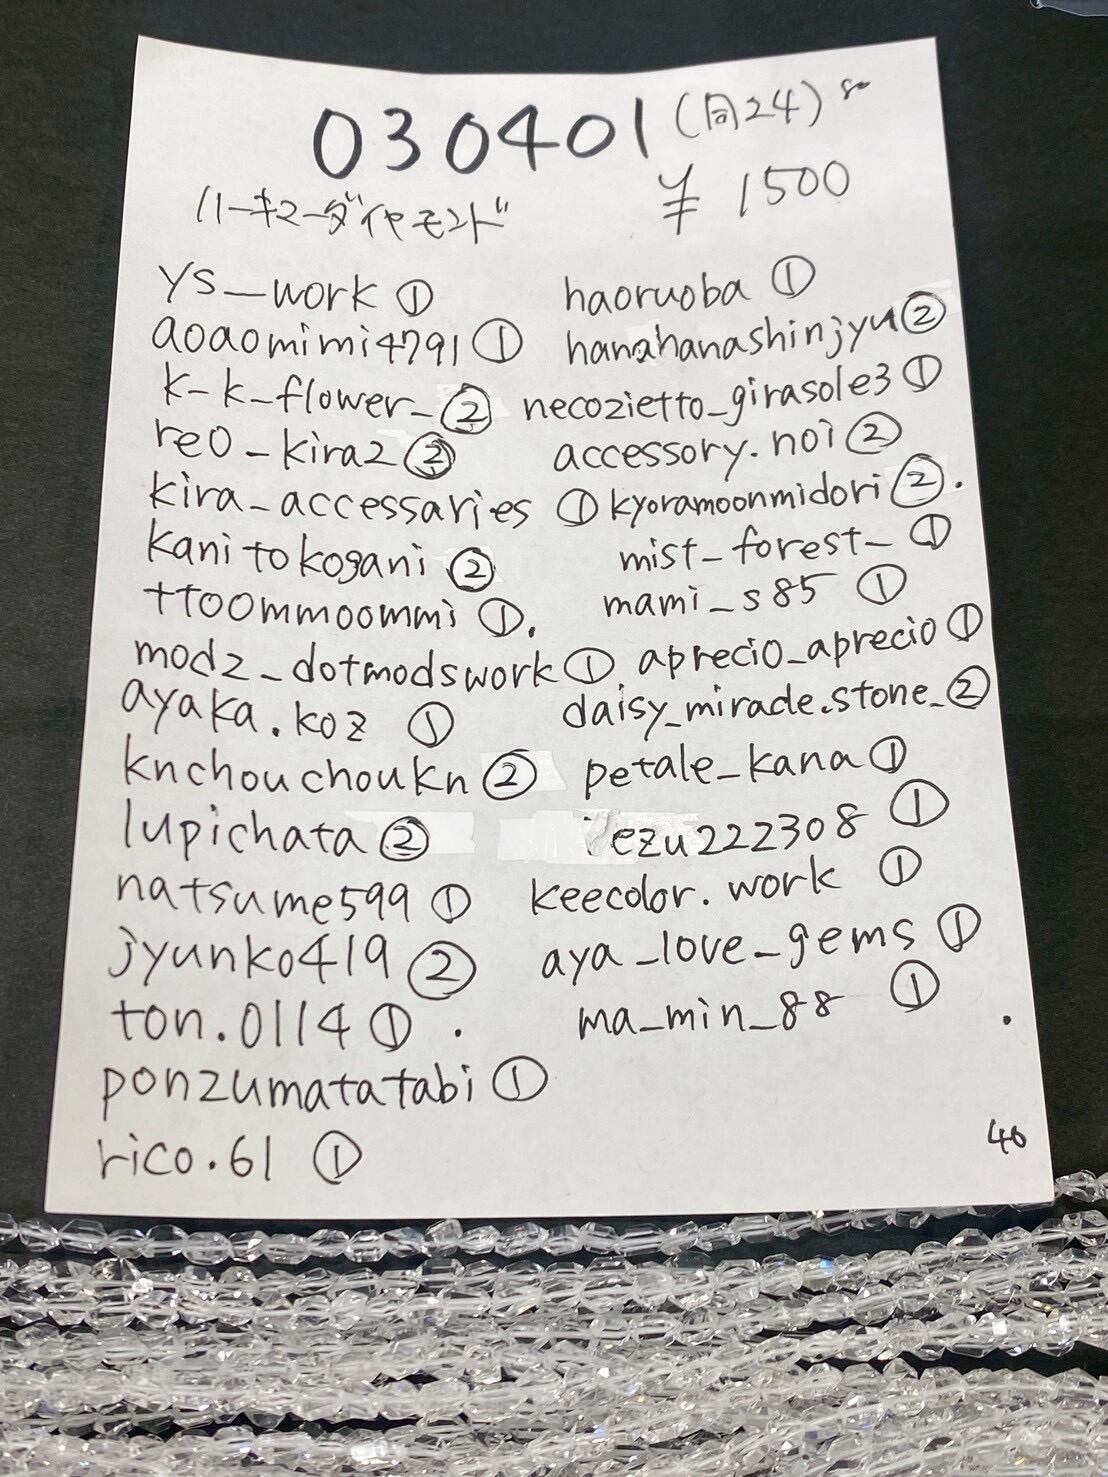 030401 (同24)
ハーキマーダイヤモンド ¥1500
ys_work ① haoruoba ①
aoaomimi4791 ① hanahanashinjyu ②
k-k-flower_ ② necozietto_girasole3 ①
reo_kira2 ② accessory.noi ②
kira_accessaries ① kyoramoonmidori ②.
kanitokogani ② mist_forest_ ①
ttoommoommi ①. mami_s85 ①
modz_dotmodswork ① aprecio_aprecio ①
ayaka.koz ① daisy_mirade.stone_ ②
knchouchoukn ② petale_kana ①
lupichata ② ezu222308 ①
natsume599 ① keecolor.work ①
jyunko419 ② aya_love_gems ①
ton.0114 ① ma_min_88 ①
ponzumatatabi ①
rico.61 ①
40